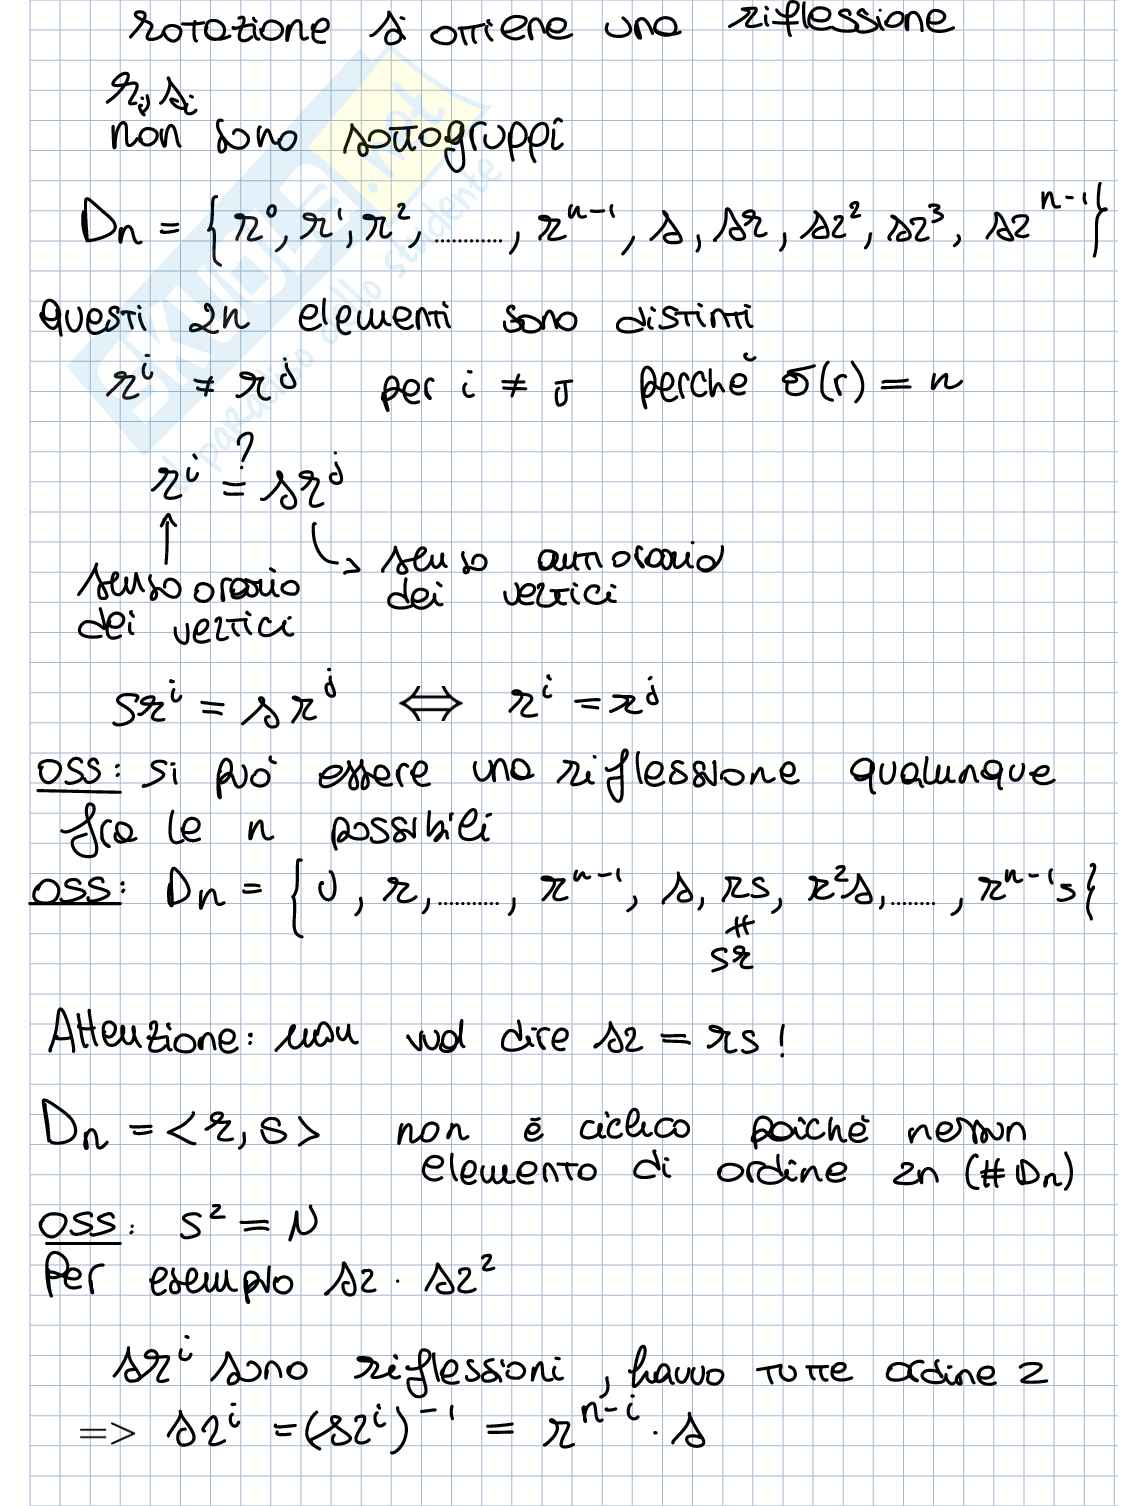 rotazione si ottiene una riflessione
r_i, s_i
non sono sottogruppi
D_n = { r^0, r^1, r^2, ..........., r^{n-1}, s, sr, sr^2, sr^3, sr^{n-1} }
questi 2n elementi sono distinti
r^i ≠ r^j per i ≠ j perchè σ(r) = n
r^i ≟ sr^j
senso orario dei vertici
senso antiorario dei vertici
sr^i = sr^j ⇔ r^i = r^j
oss: si può essere una riflessione qualunque
fra le n possibili
oss: D_n = { υ, r, .........., r^{n-1}, s, rs, r^2s, ........, r^{n-1}s }
≠
sr
Attenzione: non vuol dire sr = rs !
D_n = <r, s> non è ciclico poichè nessun
elemento di ordine 2n (# D_n)
oss: s^2 = υ
Per esempio sr · sr^2
sr^i sono riflessioni, hanno tutte ordine 2
=> sr^i = (sr^i)^{-1} = r^{n-i} · s
SKUOLA.net
il paradiso dello studente